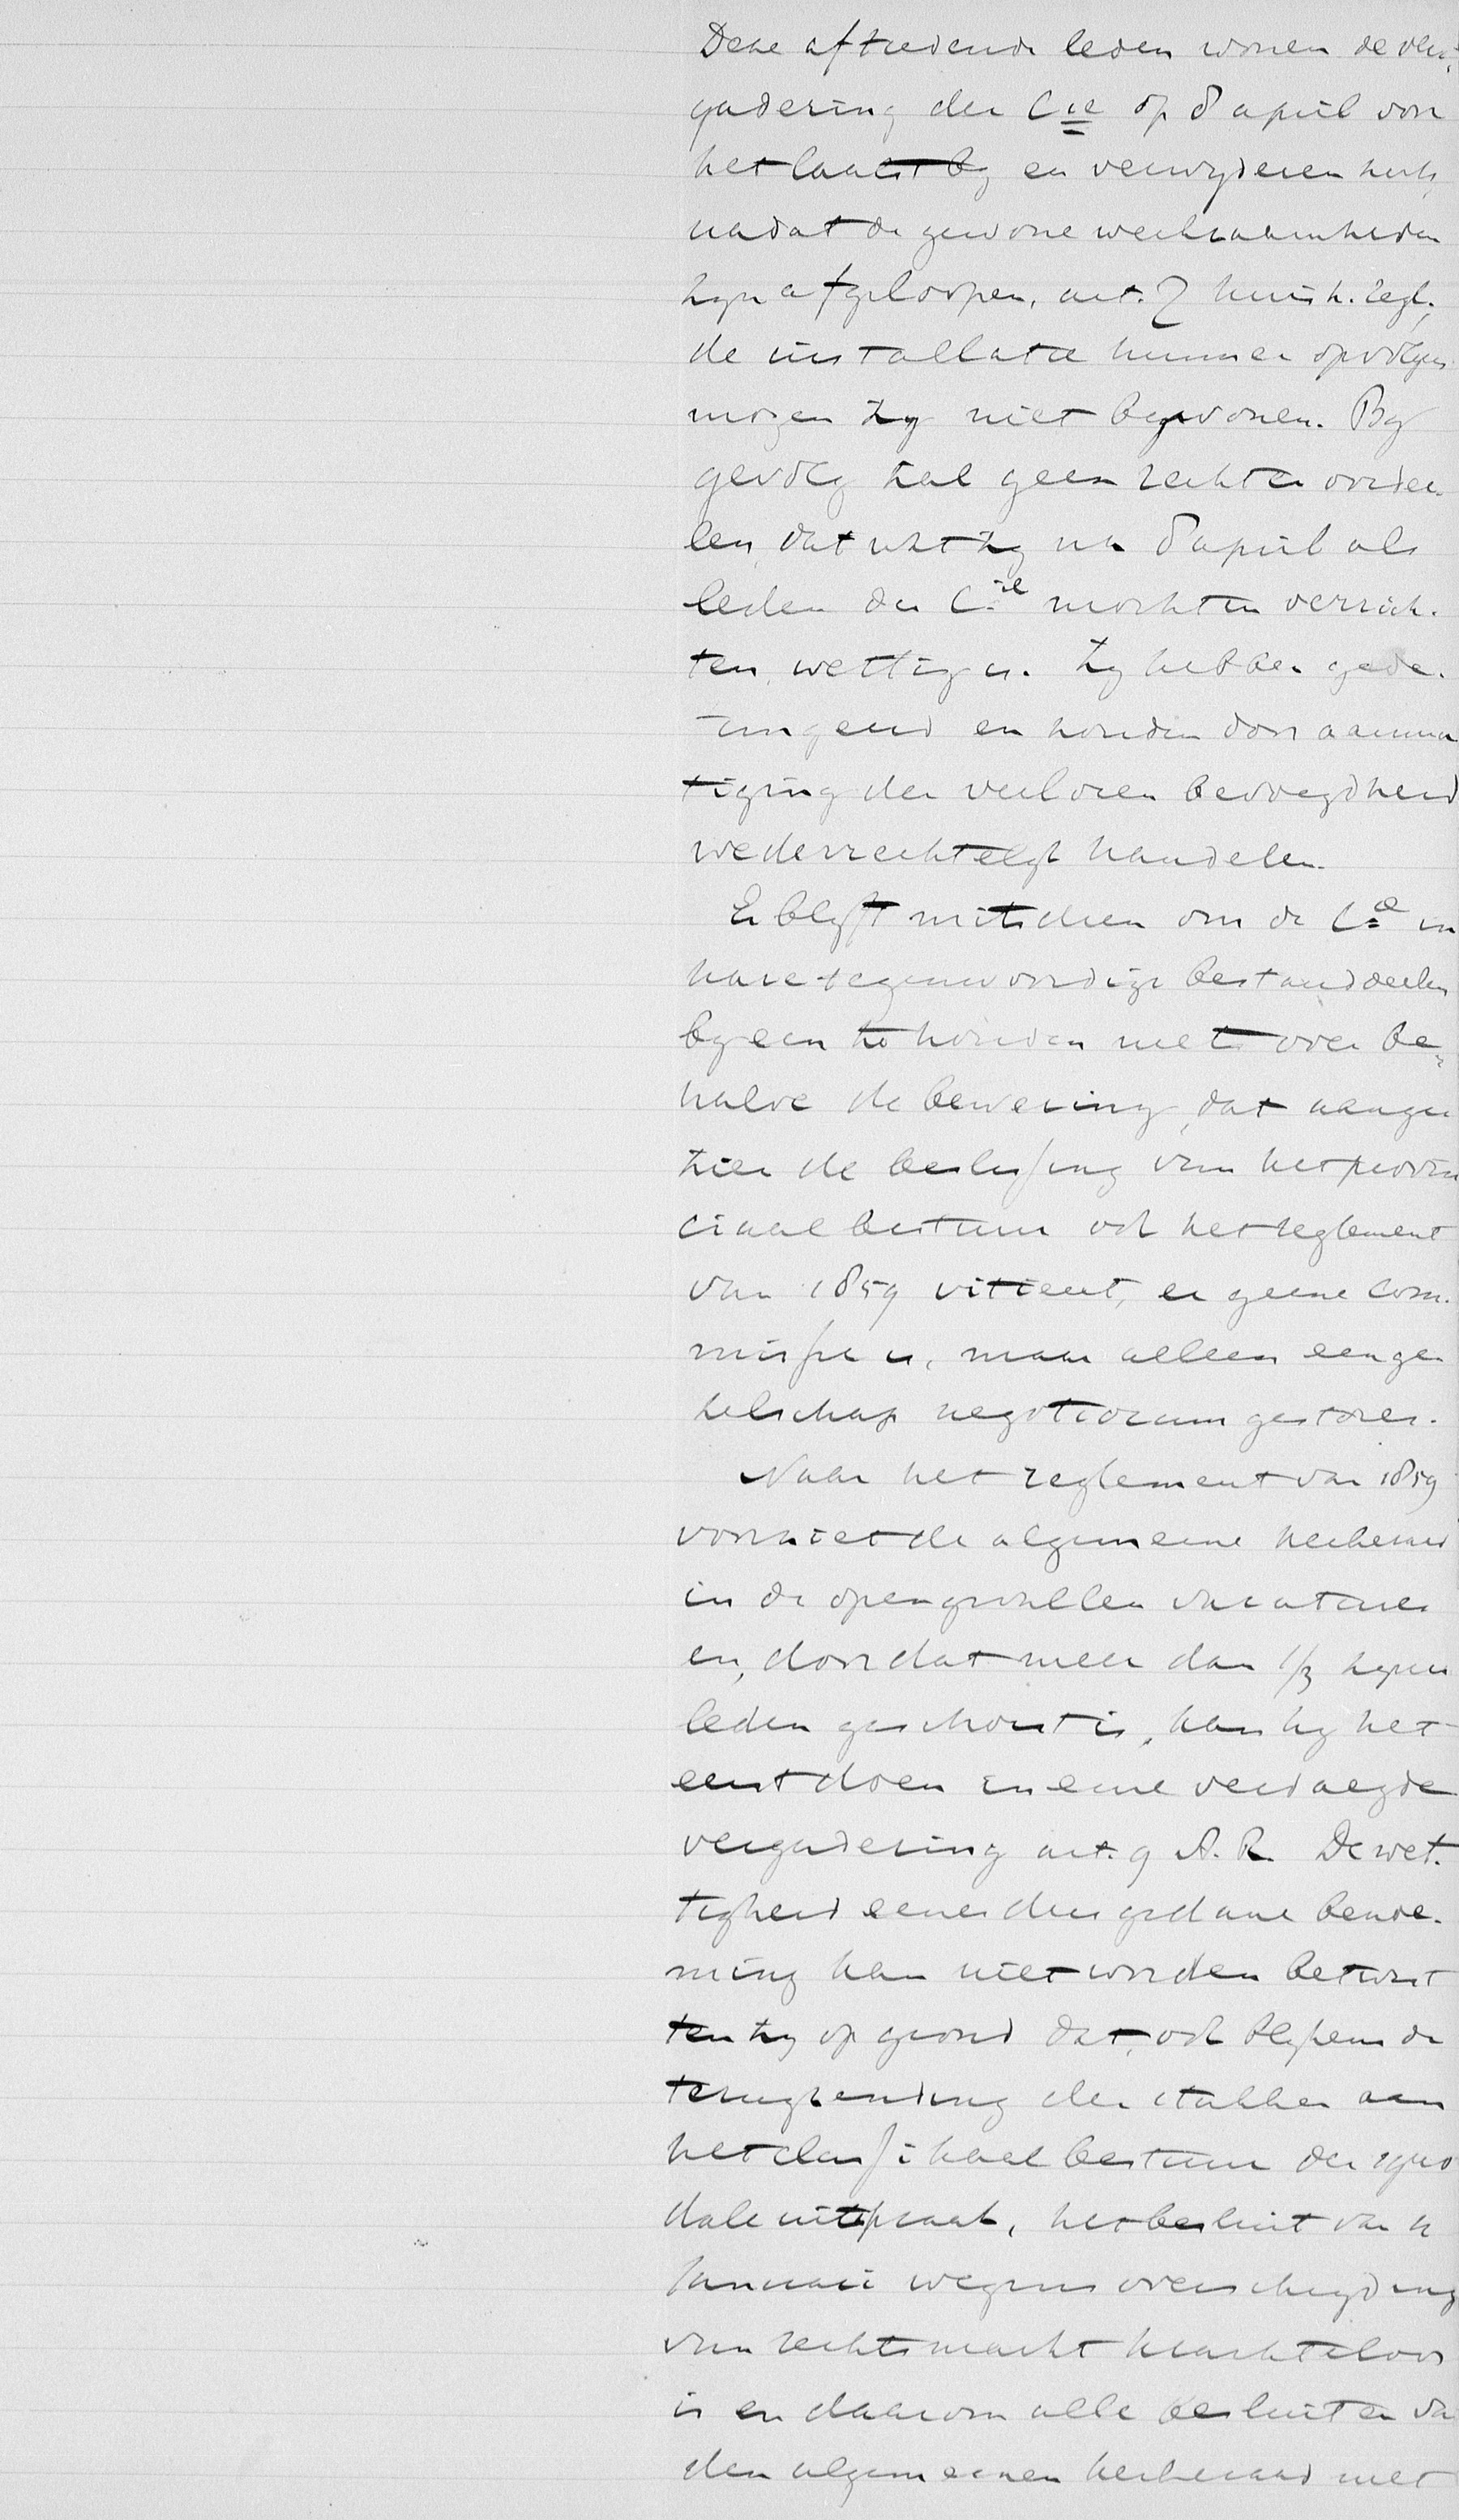 Deze aftredende leden wonen de ver-
gadering der Cie op 8 april voor
het laatst by en verwyderen zich,
nadat de gewone werkzaamheden
zyn afgeloopen, art. 7 huish. regl.;
de installatie hunner opvolgers
mogen zy niet bywonen. By
gevolg zal geen rechter oordee-
len, dat wat zy na 8 april als
leden der Cie mochten verrich-
ten, wettig is. Zy hebben gede-
tungeerd en zouden door aanma
tiging der verloren bevoegdheid
wederrechtelyk handelen.
Er blyft mitsdien om de Cie in
hare tegenwoordige bestanddeelen
byeen te houden niets over be-
halve de bewering, dat aange
zien de beslissing van het provin
ciaal bestuur ook het reglement
van 1859 vitieert, er geene com-
missie is, maar alleen een ge
zelschap negotiorum gestores.
Naar het reglement van 1859
voorziet de algemeene kerkeraad
in de opengevallen vacatures
en, doordat meer dan 1/3 zyner
leden geschorst is, kan hy het
eerst doen in eene verdaagde
vergadering art. 9 A. R. De wet-
tigheid eener dus gedane benoe-
ming kan niet worden betwist
tenzy op grond dat, ook blykens de
terugzending der stukken aan
het classikaal bestuur der syno
dale uitspraak, het besluit van 4
Januari wegens overschryding
van rechtsmacht krachteloos
is en daarom alle besluiten van
den algemeenen kerkeraad met